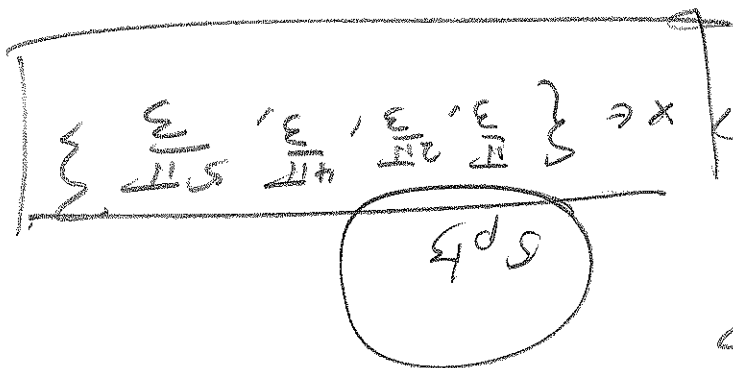 x ∈ { π/3, 2π/3, 4π/3, 5π/3 }